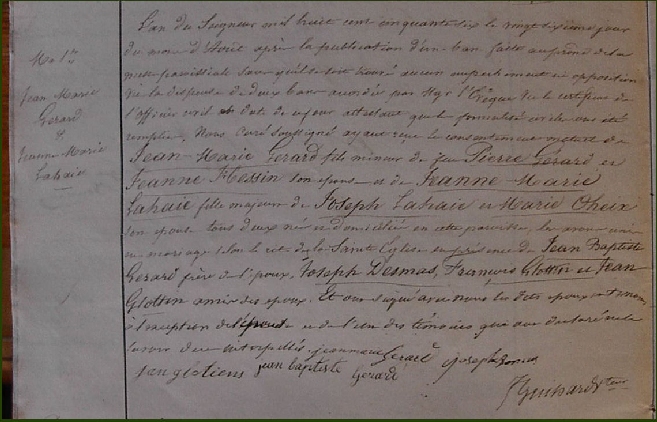 No 17
Jean-Marie
Gerard
&
Jeanne-Marie
Lahaie
L'an du Seigneur mil huit cent cinquante six le vingt sixième jour
du mois d'Août après la publication d'un ban faite au prône de la
messe paroissiale sans qu'il se soit trouvé aucun empêchement ni opposition
vu la dispense de deux bans accordée par Mgr l'Evêque vu le certificat de
l'officier civil en date de ce jour attestant que les formalités civiles ont été
remplies, Nous Curé soussigné ayant reçu le consentement mutuel de
Jean-Marie Gerard fils mineur de feu Pierre Gerard et
Jeanne Hessin son épouse et de Jeanne-Marie
Lahaie fille majeure de Joseph Lahaie et Marie Oheix
son épouse tous deux nés et domiciliés en cette paroisse, les avons unis
en mariage selon le rit de la Sainte Eglise en présence de Jean Baptiste
Gerard frère de l'époux, Joseph Desmas, François Glottin et Jean
Glottin amis des époux. Et ont signé avec nous les dits époux et témoins
à l'exception de l'épouse et de l'un des témoins qui ont déclaré ne le
savoir de ce interpellés jean marie Gerard joseph
jan glotiens jean baptiste Gerard